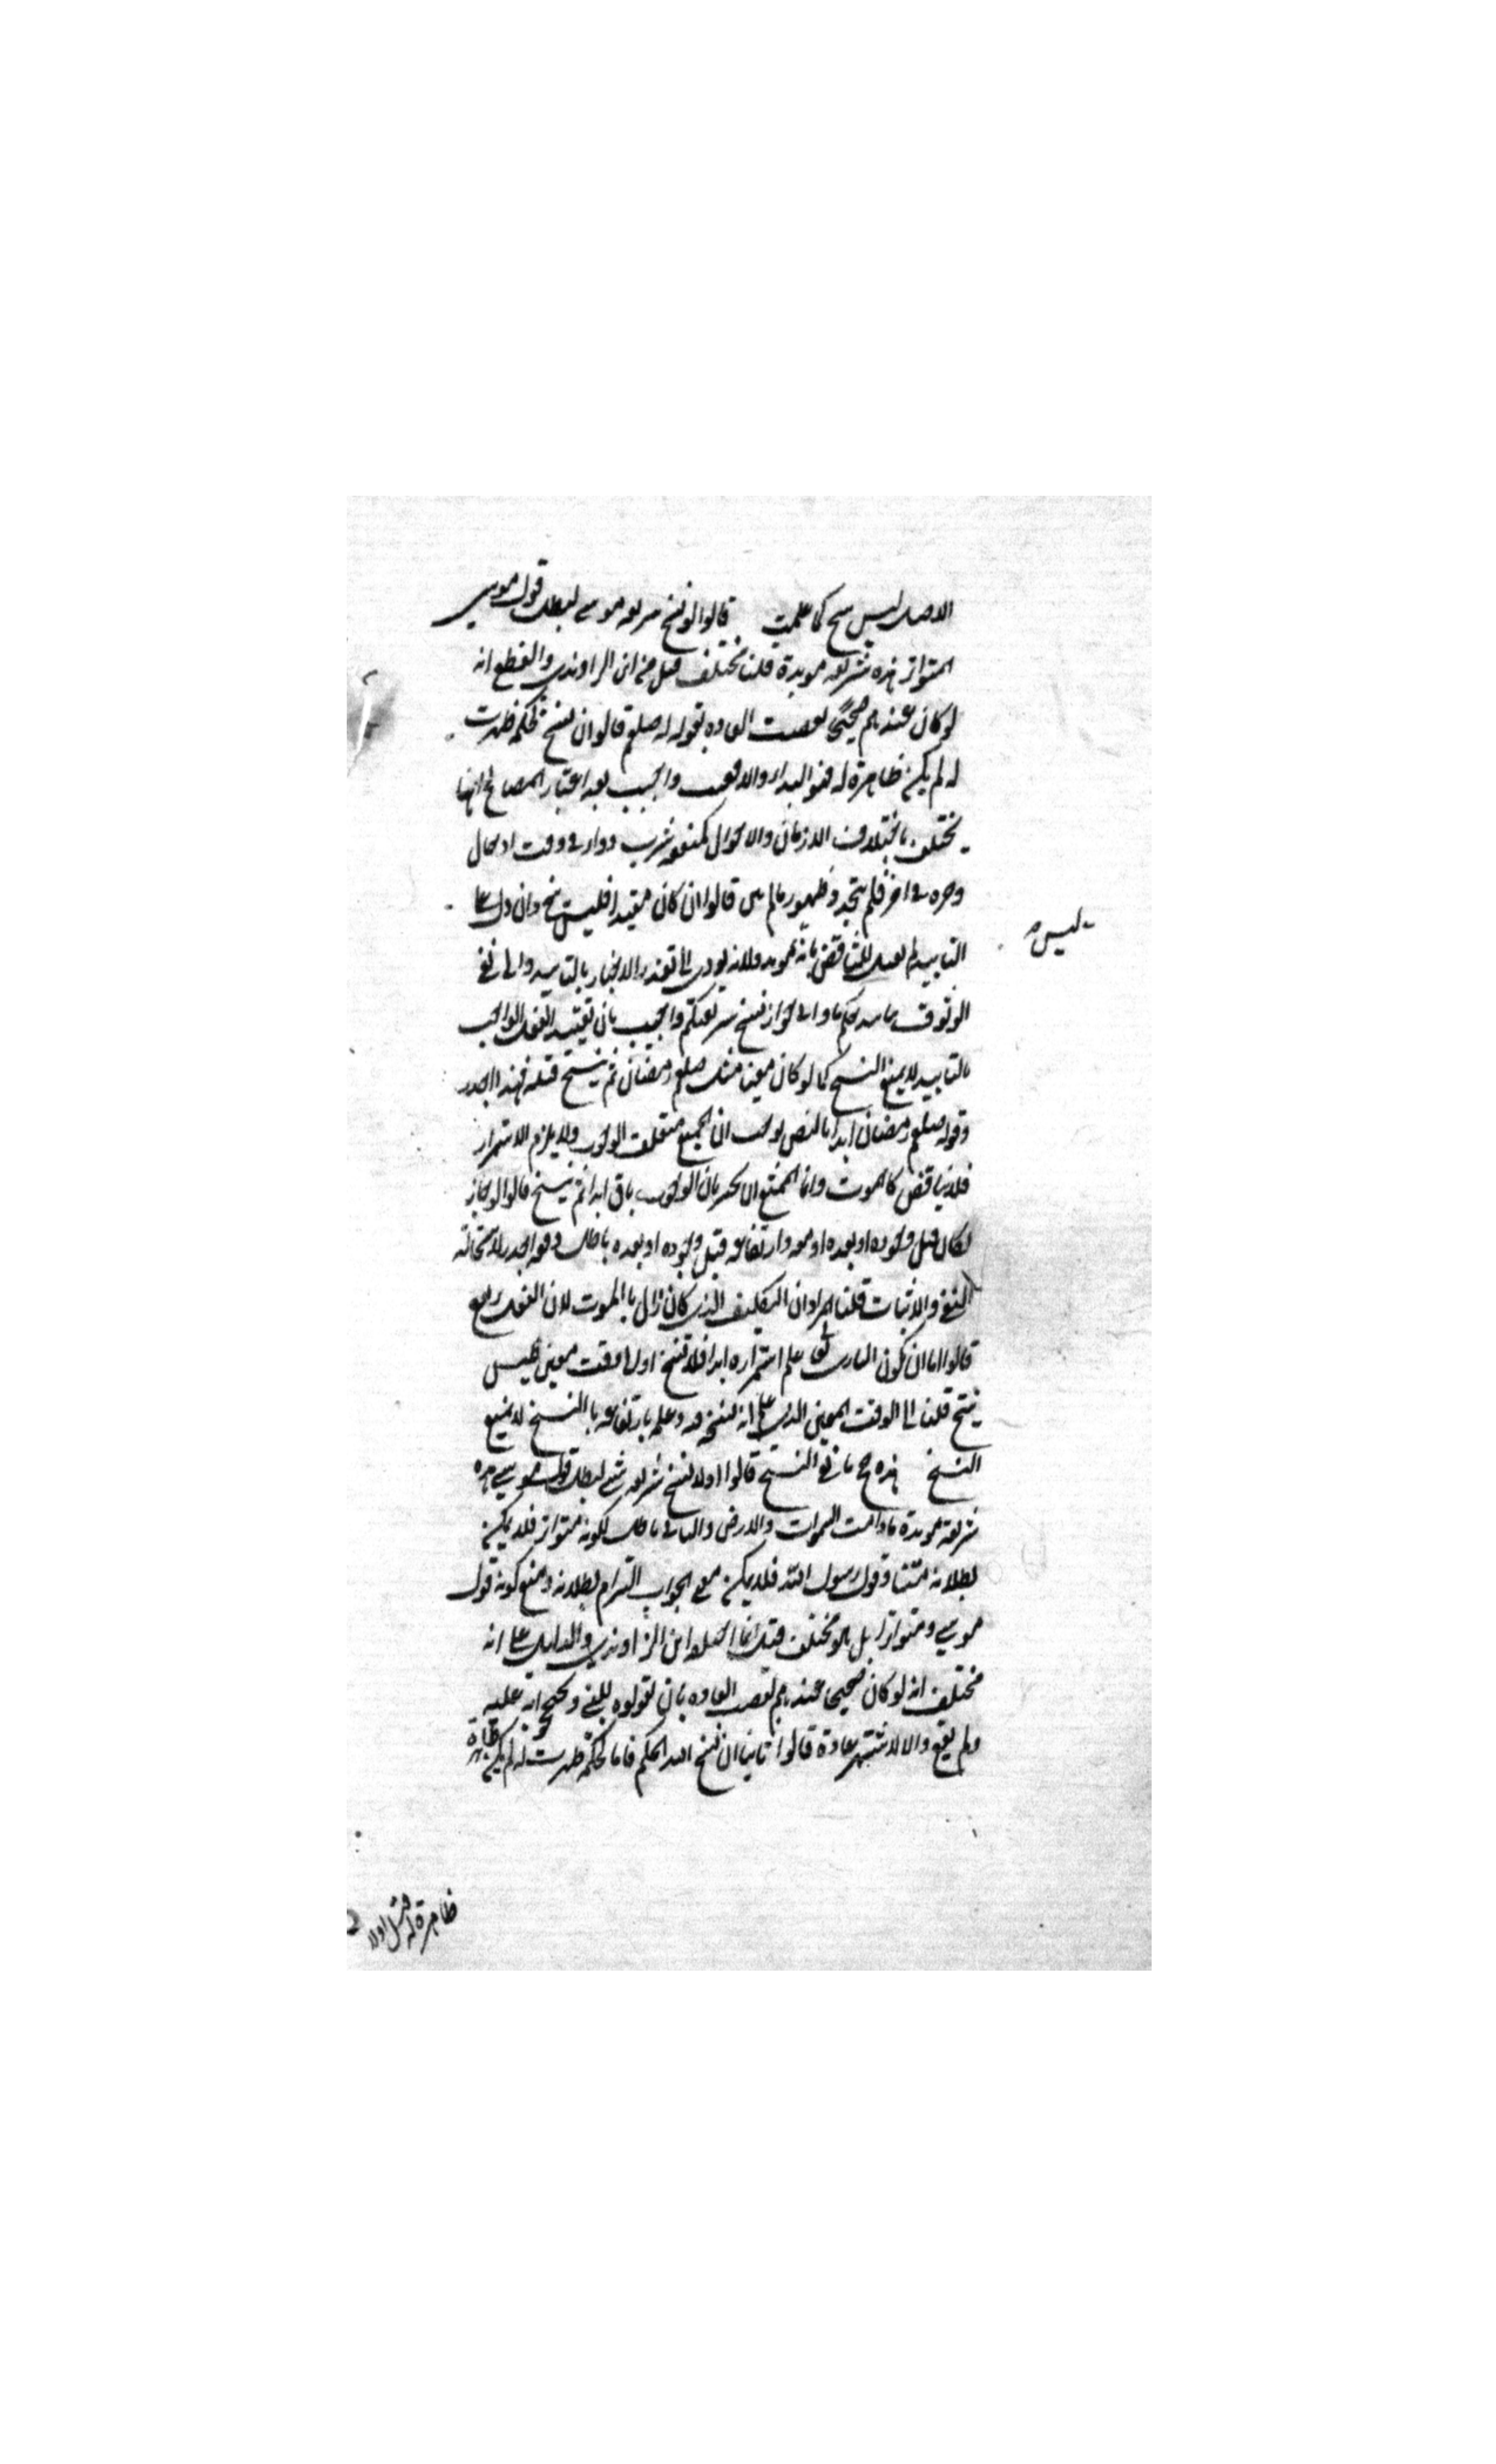 الاصل ليس بنسخ كما علمت قالوا لو نسخ شريعة موسى لبطل قول موسى
المتواتر هذه شريعة مؤبدة قلنا مختلف قيل من ابن الراوندي والقطع انه
لو كان عندهم صحيحا لقضت العادة بقوله له صلعم قالوا ان نسخ لحكمة ظهرت
له لم يكن ظاهرة له فهو البداء والا فعبث واجيب بعد اعتبار المصالح انها
يختلف باختلاف الازمان والاحوال كمنفعة شرب دواء في وقت او حال
وضره في اخر فلم يتجدد ظهور ما لم يكن قالوا ان كان مقيدا فليس بنسخ وان دل على
ليس
التابيد لم يقبل للتناقض بانه مؤبد ولانه يؤدي الى تعذر الاخبار بالتابيد والى نفي
الوثوق بتابيد حكم ما والى جواز نسخ شريعتكم واجيب بان تقييد الفعل الواجب
بالتابيد لا يمنع النسخ كما لو كان معينا مثل صم رمضان ثم ينسخ قبله فهذا اجدر
وقوله صم رمضان ابدا بالنص يوجب ان الجميع متعلق الوجوب ولا يلزم الاستمرار
فلا تناقض كالموت وانما الممتنع ان يخبر بان الوجوب باق ابدا ثم ينسخ قالوا لو جاز
لكان قبل وجوده او بعده او معه وارتفاعه قبل وجوده او بعده باطل ومعه اجدر لاستحالة
النفي والاثبات قلنا المراد ان التكليف الذي كان زال بالموت لان الفعل يرتفع
قالوا اما ان يكون الباري تعالى علم استمراره ابدا فلا نسخ او الى وقت معين فليس
بنسخ قلنا الى الوقت المعين الذي علم انه ينسخه فيه وعلمه بارتفاعه بالنسخ لا يمنع
النسخ هذه حجج مانعي النسخ قالوا اولا لو نسخ شريعة شيء لبطل قول موسى هذه
شريعة مؤبدة ما دامت السموات والارض والتالي باطل لكونه متواتر فلا يمكن
بطلانه متنا وقول رسول الله فلا يمكن معنى الجواب التزام بطلانه ومنع كونه قول
موسى ومتواترا بل هو مختلق قيل انما اختلقه ابن الراوندي والدليل على انه
مختلق انه لو كان صحيحا عندهم لقضت العادة بان يقولوه للنبي ويحتجوا به عليه
ولم يقع والا لاشتهر عادة قالوا ثانيا ان نسخ الله الحكم فاما لحكمة ظهرت له لم يكن ظاهرة
ظاهرة له قبل اولا